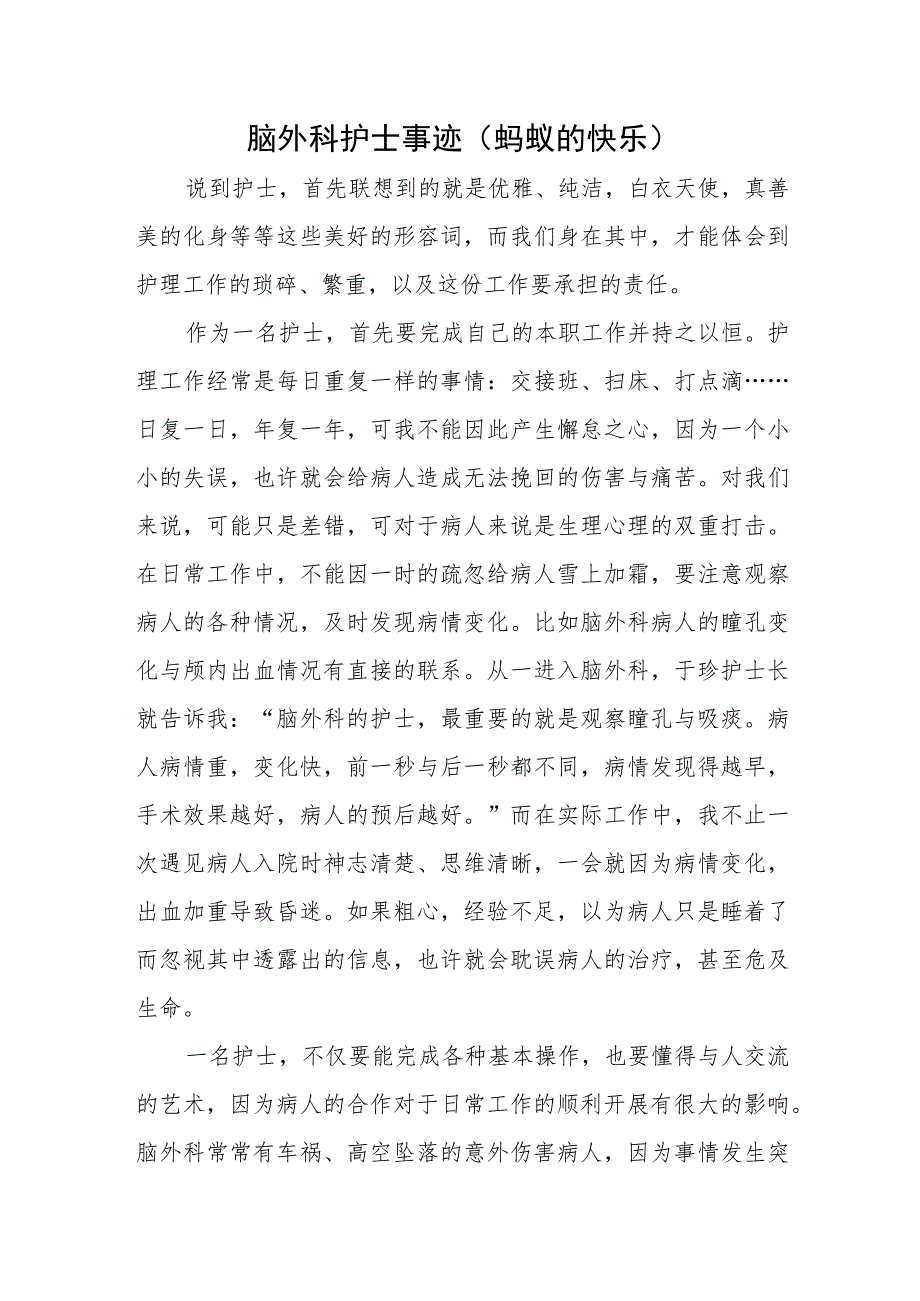 脑外科护士事迹（蚂蚁的快乐）
说到护士，首先联想到的就是优雅、纯洁，白衣天使，真善
美的化身等等这些美好的形容词，而我们身在其中，才能体会到
护理工作的琐碎、繁重，以及这份工作要承担的责任。
作为一名护士，首先要完成自己的本职工作并持之以恒。护
理工作经常是每日重复一样的事情：交接班、扫床、打点滴……
日复一日，年复一年，可我不能因此产生懈怠之心，因为一个小
小的失误，也许就会给病人造成无法挽回的伤害与痛苦。对我们
来说，可能只是差错，可对于病人来说是生理心理的双重打击。
在日常工作中，不能因一时的疏忽给病人雪上加霜，要注意观察
病人的各种情况，及时发现病情变化。比如脑外科病人的瞳孔变
化与颅内出血情况有直接的联系。从一进入脑外科，于珍护士长
就告诉我：“脑外科的护士，最重要的就是观察瞳孔与吸痰。病
人病情重，变化快，前一秒与后一秒都不同，病情发现得越早，
手术效果越好，病人的预后越好。”而在实际工作中，我不止一
次遇见病人入院时神志清楚、思维清晰，一会就因为病情变化，
出血加重导致昏迷。如果粗心，经验不足，以为病人只是睡着了
而忽视其中透露出的信息，也许就会耽误病人的治疗，甚至危及
生命。
一名护士，不仅要能完成各种基本操作，也要懂得与人交流
的艺术，因为病人的合作对于日常工作的顺利开展有很大的影响。
脑外科常常有车祸、高空坠落的意外伤害病人，因为事情发生突